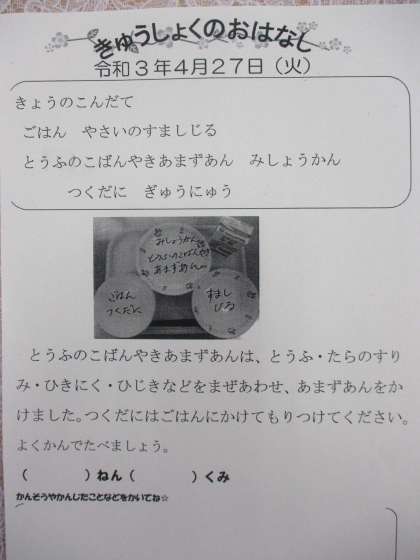 きゅうしょくのおはなし
令和３年４月２７日（火）
きょうのこんだて
ごはん　やさいのすましじる
とうふのこばんやきあまずあん　みしょうかん
つくだに　ぎゅうにゅう
みしょうかん
とうふのこばんやき
あまずあん
ごはん
つくだに
すまし
じる
とうふのこばんやきあまずあんは、とうふ・たらのすり
み・ひきにく・ひじきなどをまぜあわせ、あまずあんをか
けました。つくだにはごはんにかけてもりつけてください。
よくかんでたべましょう。
（　　　　）ねん（　　　　）くみ
かんそうやかんしたことなどをかいてね☆